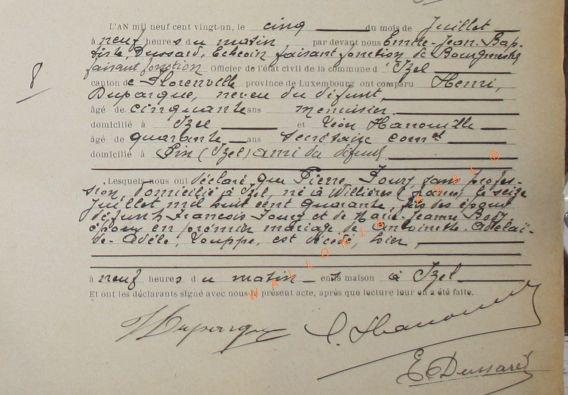 8
L'AN mil neuf cent vingt-un, le cinq du mois de Juillet
à neuf heures du matin par devant nous Emile-Jean-Bap-
tiste Dussard, Echevin faisant fonction de Bourgmestre
faisant fonction officier de l'état civil de la commune d'Izel
canton de Florenville, province de Luxembourg ont comparu Henri
Duparque, neveu du défunt,
âgé de cinquante ans menuisier
domicilié à Izel et Léon Hanouille
âgé de quarante ans secrétaire comal
domicilié à Pin (Izel) ami du défunt
Lesquels nous ont déclaré que Pierre Joury sans profes-
sion, domicilié à Izel, né à Williers (france) le seize
Juillet mil huit cent quarante, fils des époux
défunts François Joury et de Marie-Jeanne
époux en premier mariage de Antoinette Adélaï-
de-Adèle, Pouppe, est décédé, hier,
à neuf heures du matin en sa maison à Izel
Et ont les déclarants signé avec nous le présent acte, après que lecture leur en a été faite.
H Duparque L. Hanouille
E. Dussard